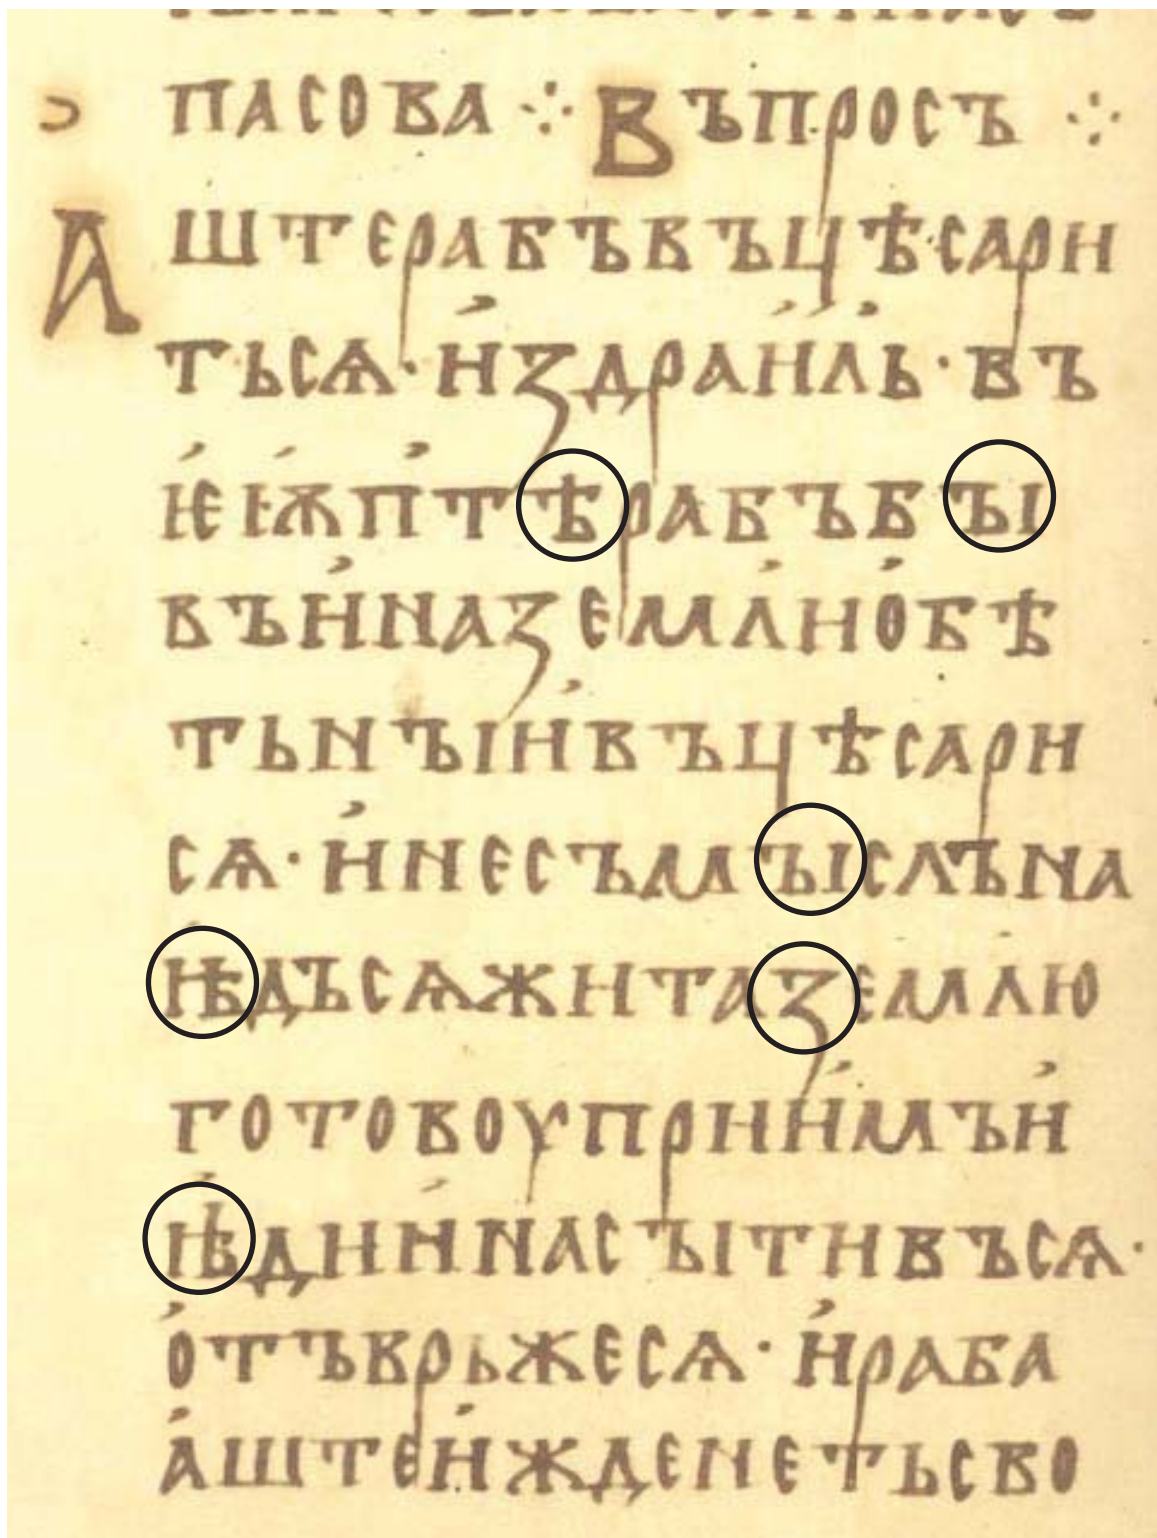 пасова ⁘ Въпросъ ⁘
Аштерабъвъцѣсари
тьсѧ·издраиль·въ
ѥгѵптѣрабъбꙑ
въиназемлиобѣ
тьнꙑивъцѣсари
сѧ·инесъмꙑслъна
ꙗдъсѧжитаземлю
готовоуприимъи
ꙗдиинасꙑтивъсѧ·
отъврьжесѧ·ираба
аштеижденетьсво